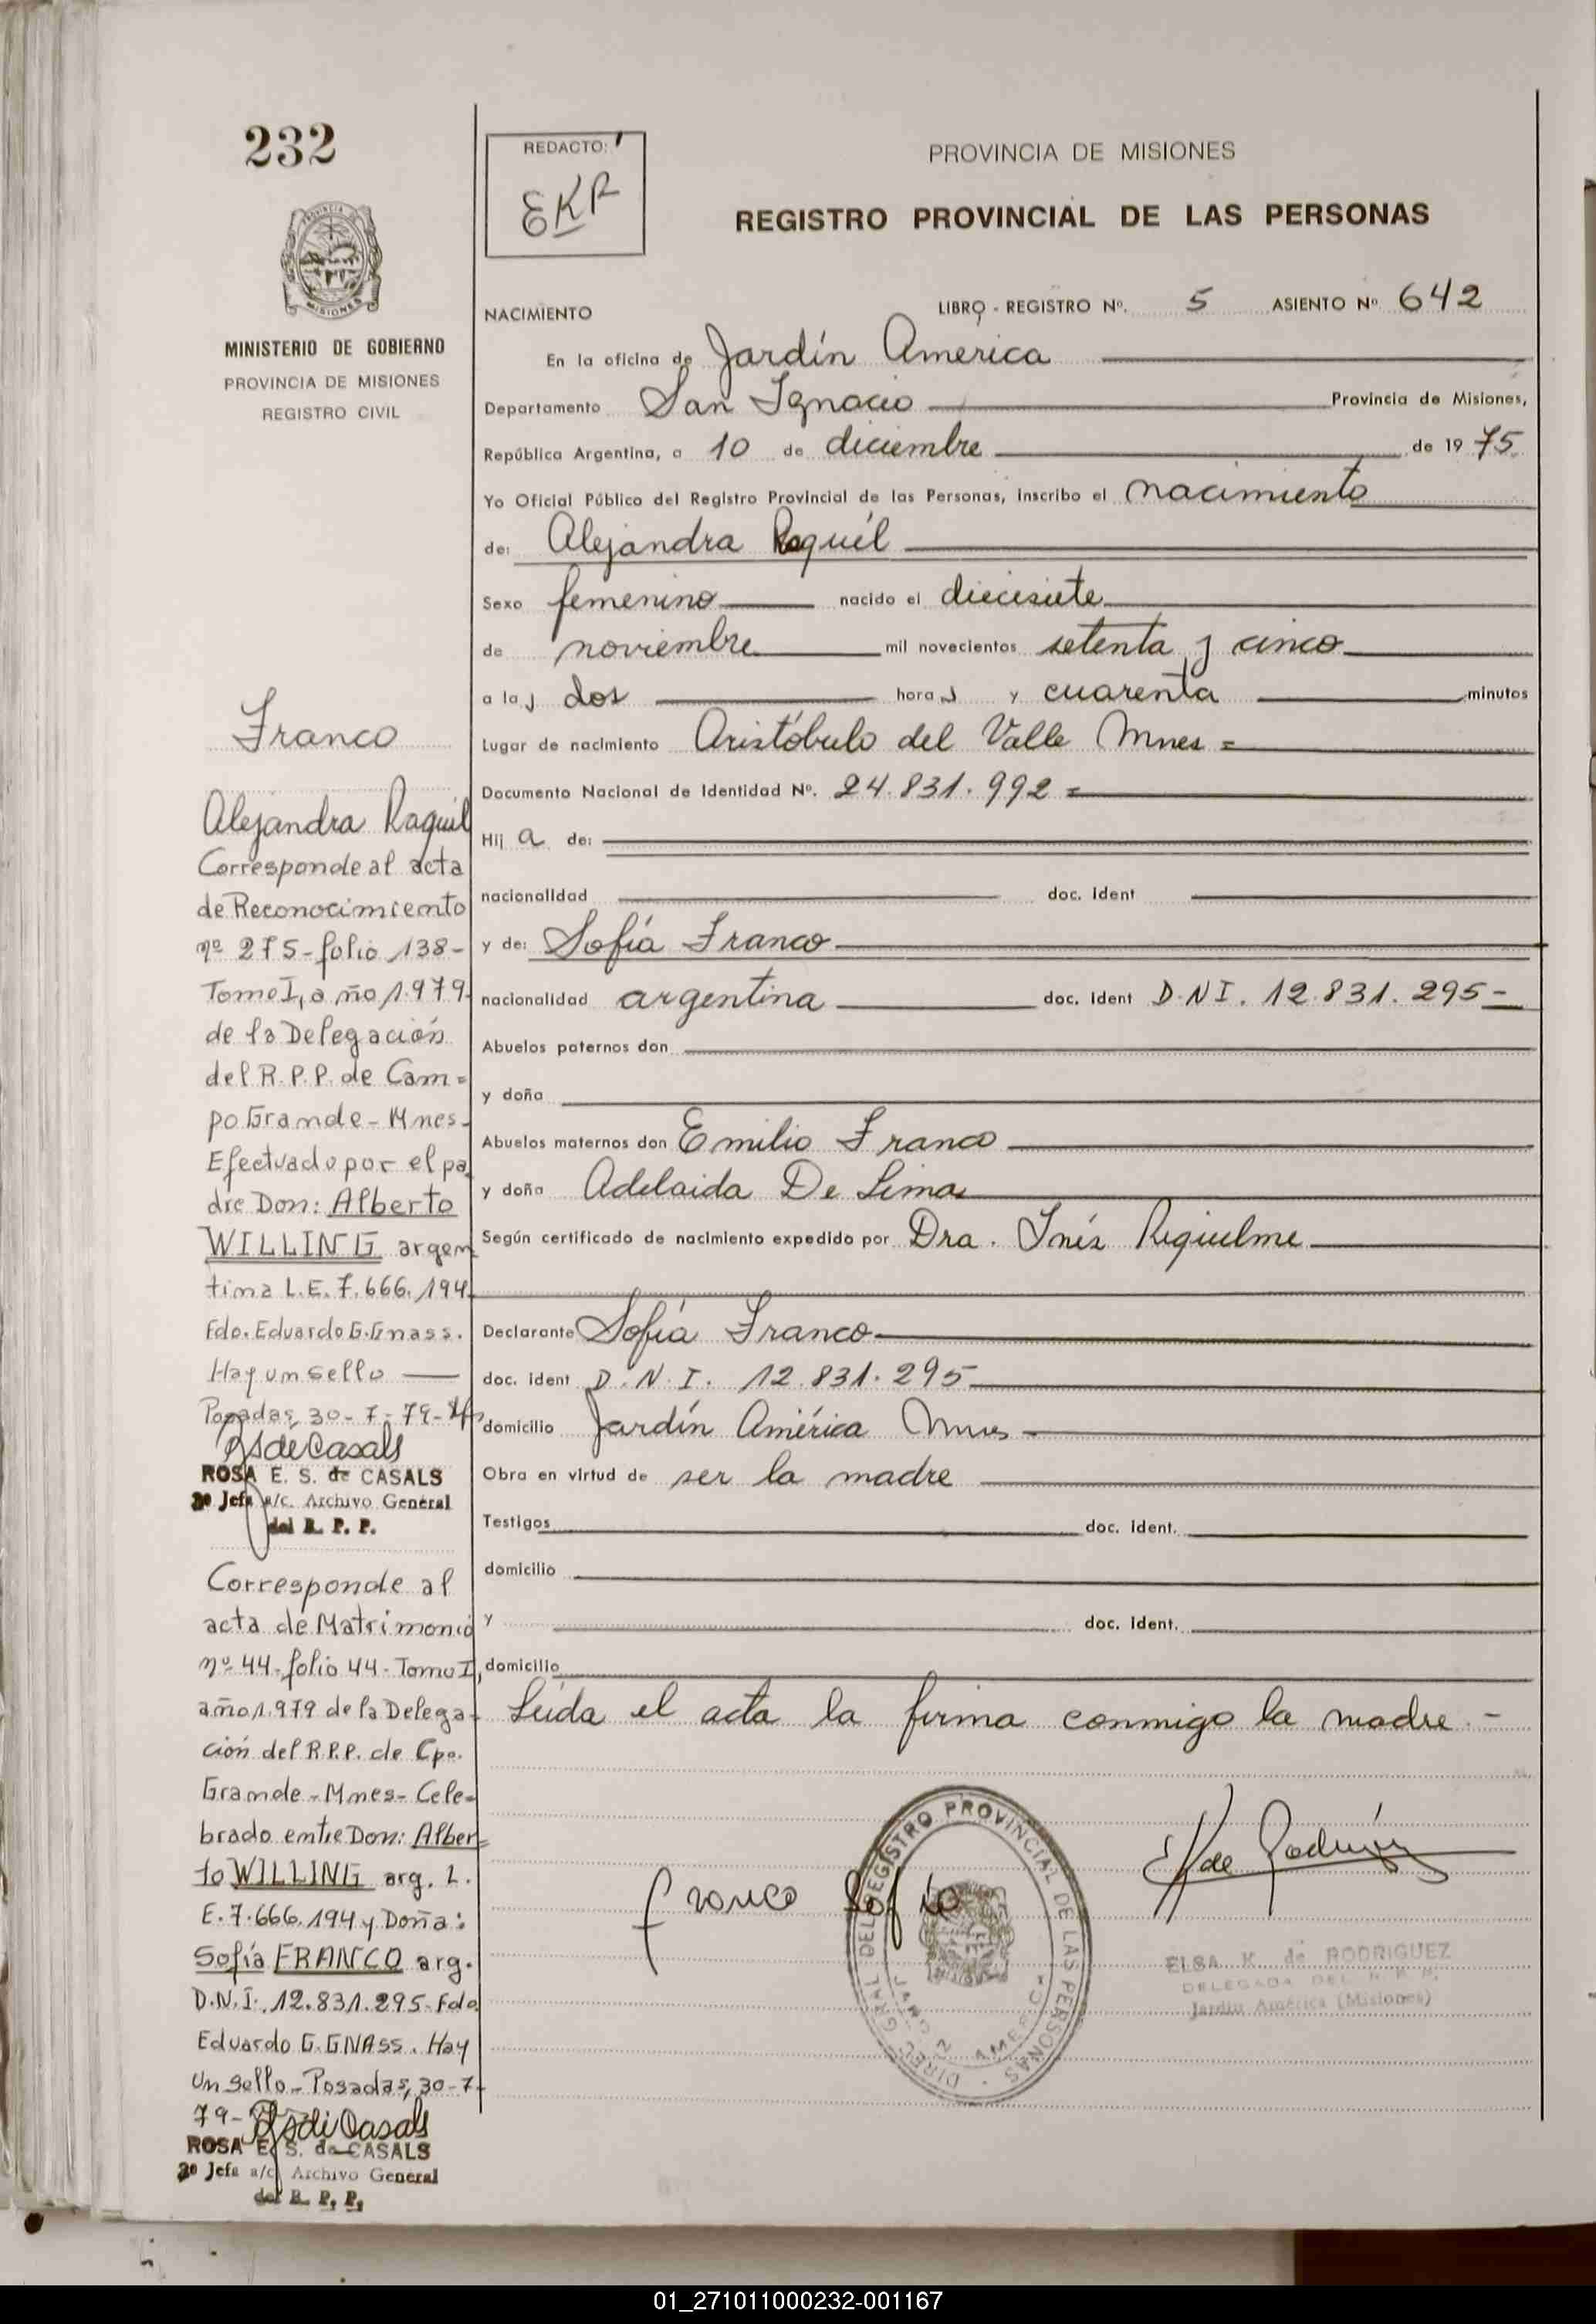 232
REDACTO:
EKR
PROVINCIA DE MISIONES
REGISTRO PROVINCIAL DE LAS PERSONAS
MISIONES
MINISTERIO DE GOBIERNO
PROVINCIA DE MISIONES
REGISTRO CIVIL
NACIMIENTO
LIBRO - REGISTRO Nº. 5 ASIENTO Nº 642
En la oficina de Jardín America
Departamento San Ignacio Provincia de Misiones,
República Argentina, a 10 de diciembre de 1975
Yo Oficial Público del Registro Provincial de las Personas, inscribo el nacimiento
de: Alejandra Raquél
Sexo femenino nacido el diecisiete
de noviembre mil novecientos setenta y cinco
a las dos horas y cuarenta minutos
Lugar de nacimiento Aristóbulo del Valle Mnes =
Documento Nacional de Identidad Nº. 24.831.992 =
Hija de:
nacionalidad doc. ident
y de: Sofía Franco
nacionalidad argentina doc. ident D.N I. 12.831.295-
Abuelos paternos don
y doña
Abuelos maternos don Emilio Franco
y doña Adelaida De Lima
Según certificado de nacimiento expedido por Dra. Inés Riquelme
Declarante Sofía Franco
doc. ident D.N.I. 12.831.295
domicilio Jardín América Mnes
Obra en virtud de ser la madre
Testigos doc. ident.
domicilio
y doc. ident.
domicilio
Leída el acta la firma conmigo la madre.-
Franco Sofía
DIREC. GRAL. DEL REGISTRO PROVINCIAL DE LAS PERSONAS
ELSA K. de RODRIGUEZ
DELEGADA DEL R. P. P.
Jardín América (Misiones)
Franco
Alejandra Raquél
Corresponde al acta
de Reconocimiento
nº 275-folio 138-
Tomo I, año 1.979
de la Delegación
del R.P.P. de Cam=
po Grande-Mnes-
Efectuado por el pa
dre Don: Alberto
WILLING argen
tina L.E. 7.666.194
Fdo. Eduardo G. Gnass.
Hay un sello
Posadas, 30-7-79-
RSdeCasals
ROSA E. S. de CASALS
2º Jefa a/c. Archivo General
del R. P. P.
Corresponde al
acta de Matrimonio
nº 44-folio 44-Tomo I,
año 1.979 de la Delega-
ción del R.P.P. de Cpo.
Grande-Mnes-Cele=
brado entre Don: Alber=
to WILLING arg. L.
E. 7.666.194 y Doña:
Sofía FRANCO arg.
D.N.I. 12.831.295-Fdo
Eduardo G. GNASS. Hay
un sello-Posadas, 30-7-
79-
RSdeCasals
ROSA E. S. de CASALS
2º Jefa a/c Archivo General
del R. P. P.
01_271011000232-001167